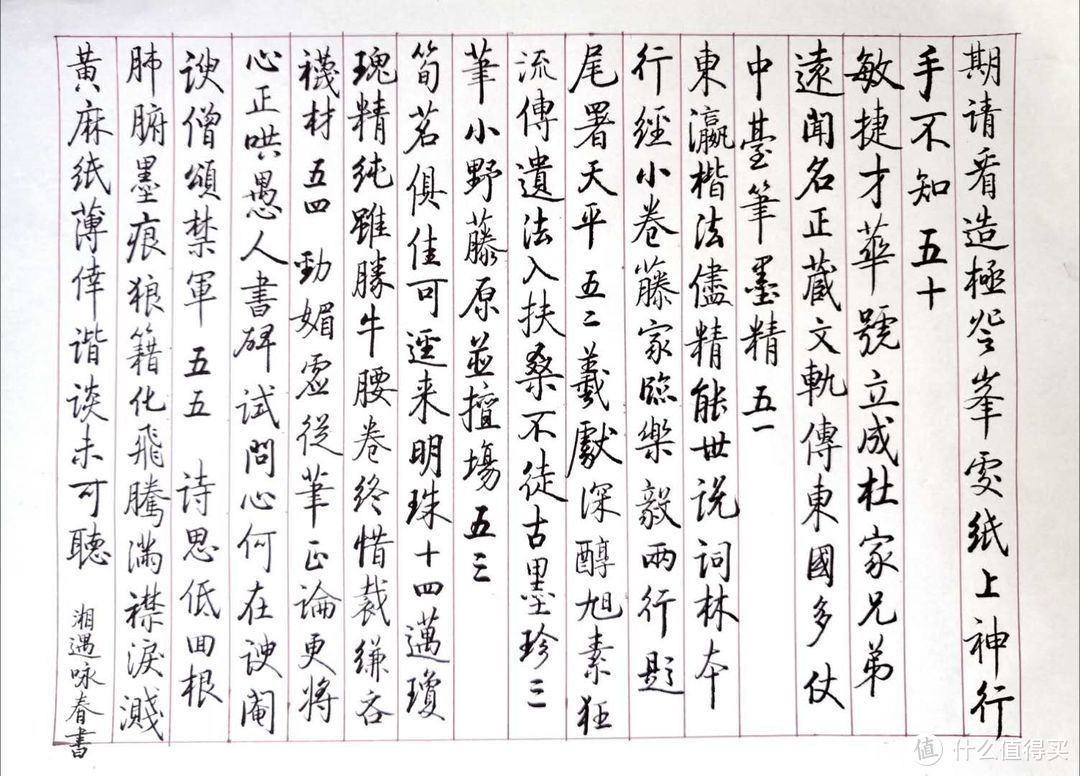 期请看造極夸峯雯纸上神行
手不知 五十
敏捷才華號立成杜家兄弟
遠聞名正蔵文軌傳東國多仗
中臺筆墨精 五一
東瀛楷法儘精能世说詞林本
行經小卷藤家臨樂毅两行題
尾署天平 五二 羲獻深醇旭素狂
流傳遺法入扶桑不徒古墨珍三
筆小野藤原並擅場 五三
筍茗俱佳可逕来明珠十四邁瓊
瑰精纯雖勝牛腰卷终惜裁缣吝
襪材 五四 勁媚虚從筆正論更将
心正哄愚人書碑試問心何在諛閹
諛僧頌禁軍 五五 诗思低回根
肺腑墨痕狼籍化飛騰满襟淚濺
黄麻纸薄倖谐谈未可聽
湘遇咏春書
值 什么值得买